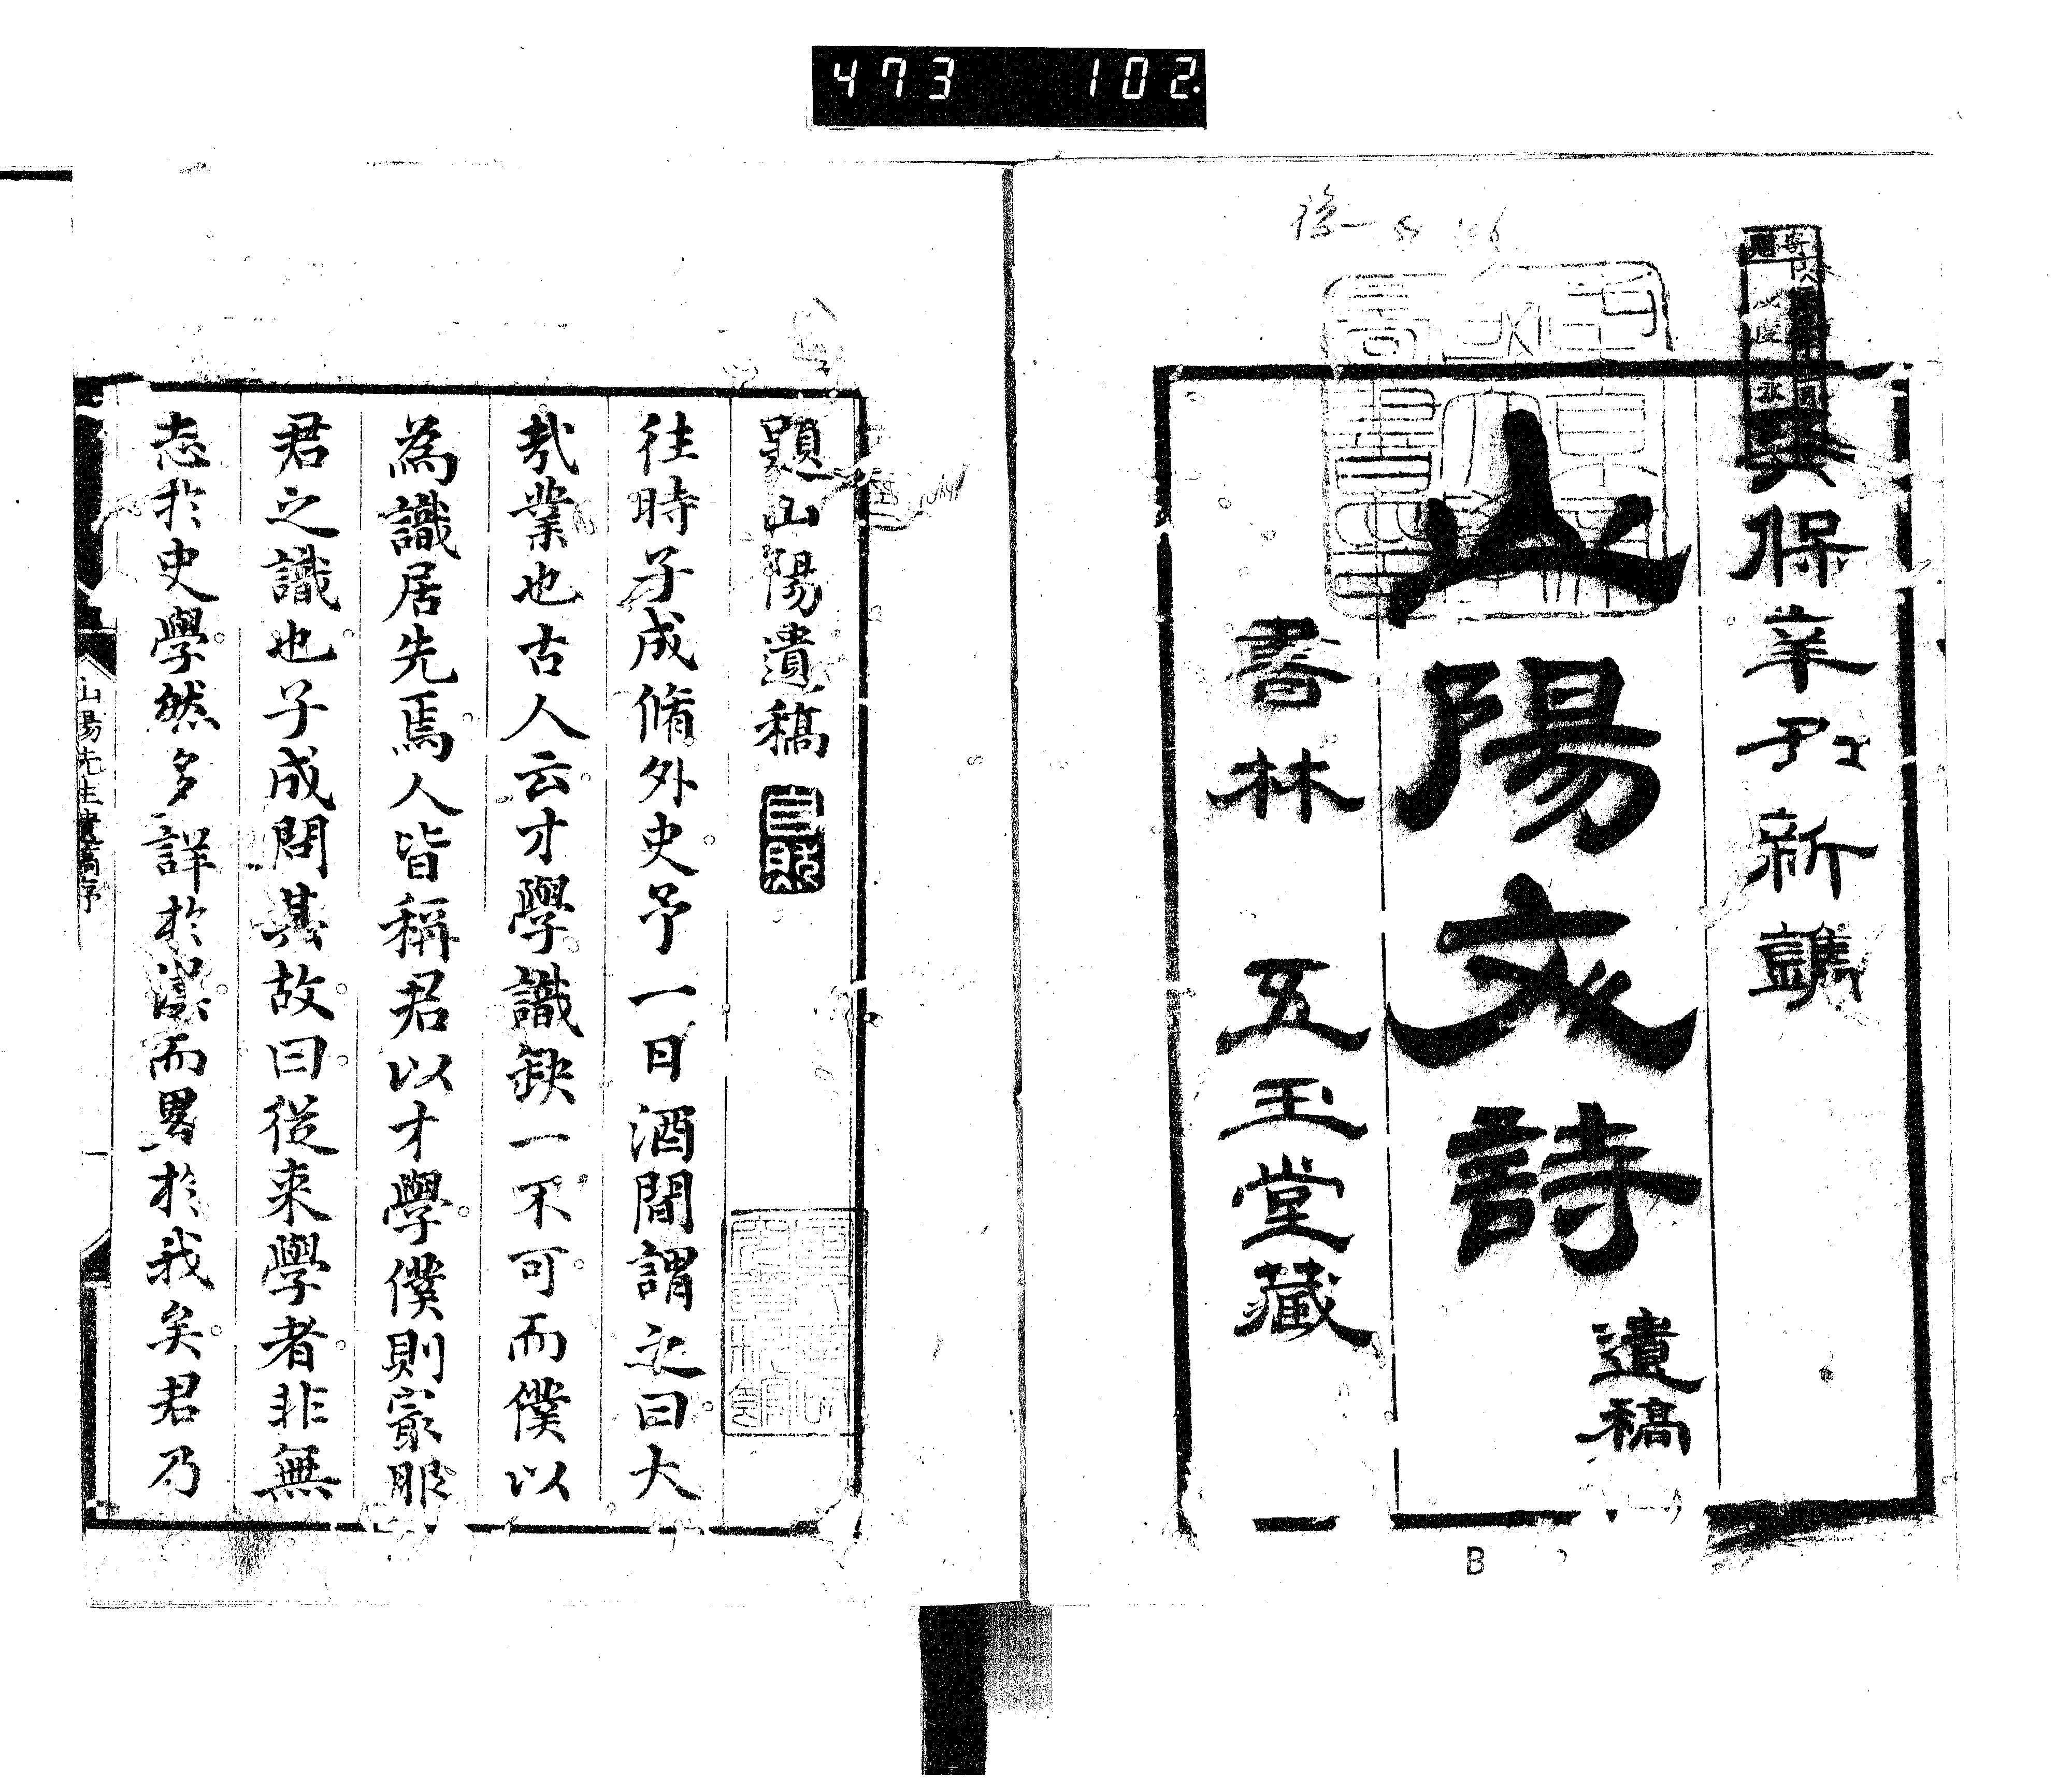 473 102
天保辛丑新鐫
山陽文詩
遺稿
書林 五玉堂藏
B
題山陽遺稿
往時子成脩外史予一日酒間謂之曰大
哉業也古人云才學識缺一不可而僕以
為識居先焉人皆稱君以才學僕則最服
君之識也子成問其故曰從來學者非無
志於史學然多詳於漢而畧於我矣君乃
山陽先生遺稿序
一